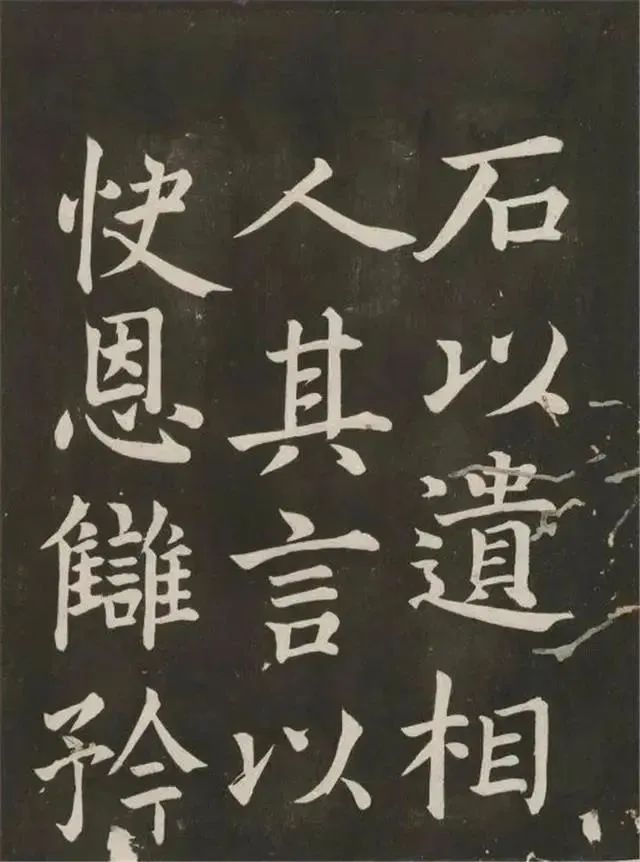 石以遺相
人其言以
快恩讎矜